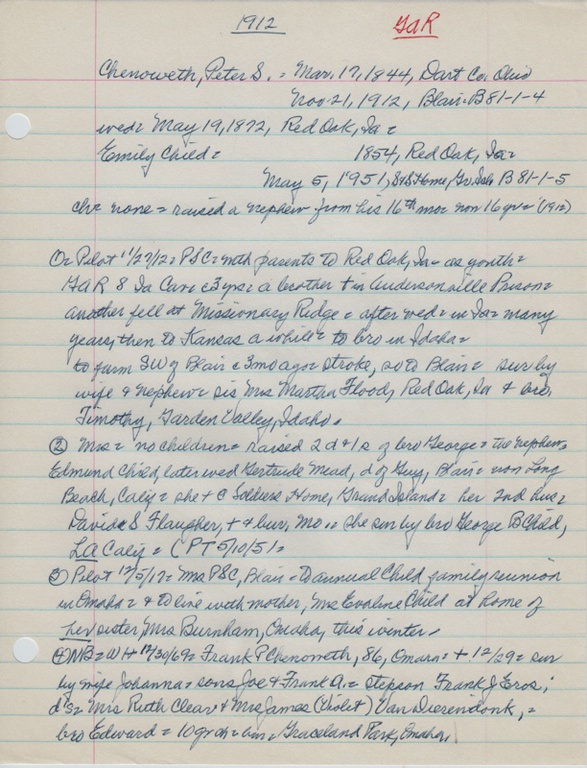 1912 GaR
Chenoweth, Peter S. = Mar. 17, 1844, Dart Co, Ohio
Nov. 21, 1912, Blair = B 81-1-4
wed = May 19, 1872, Red Oak, Ia =
Emily Child = 1854, Red Oak, Ia =
May 5, 1951, S&S Home, Gr. Isle B 81-1-5
ch = none = raised a nephew from his 16th mo = now 16 yr = (1912)
Ob Pilot 11/27/12 = PSC = with parents to Red Oak, Ia = as youth =
GaR 8 Ia Cav = c3 yrs = a brother + in Andersonville Prison =
another fell at Missionary Ridge = after wed = in Ia = many
years, then to Kansas a while = to bro in Idaho =
to farm SW of Blair c 3 mo ago = stroke, so to Blair = sur by
wife & nephew = sis Mrs Martha Flood, Red Oak, Ia & bro,
Timothy, Garden Valley, Idaho.
② Mrs = no children = raised 2 d & 1 s of bro George = the nephew
Edmund Child, later wed Gertrude Mead, d of Guy, Blair = now Long
Beach, Calif = she + @ Soldiers Home, Grand Island = her 2nd hus =
David S Flaugher, + & bur, Mo .. she sur by bro George B Child,
LA Calif = (PT 5/10/51 =
3) Pilot 12/5/17 = Mrs PSC, Blair = to annual Child family reunion
in Omaha = & to live with mother, Mrs Evaline Child at home of
her sister Mrs Burnham, Omaha, this winter.
④ NB = WH 12/30/69 = Frank P Chenoweth, 86, Omaha = + 12/29 = sur
by wife Johanna = sons Joe & Frank A. = stepson Frank J Eros;
d's = Mrs Ruth Cleav & Mrs James (Violet) Van Dierendonk, =
bro Edward = 10 gr ch = bur = Graceland Park, Omaha.